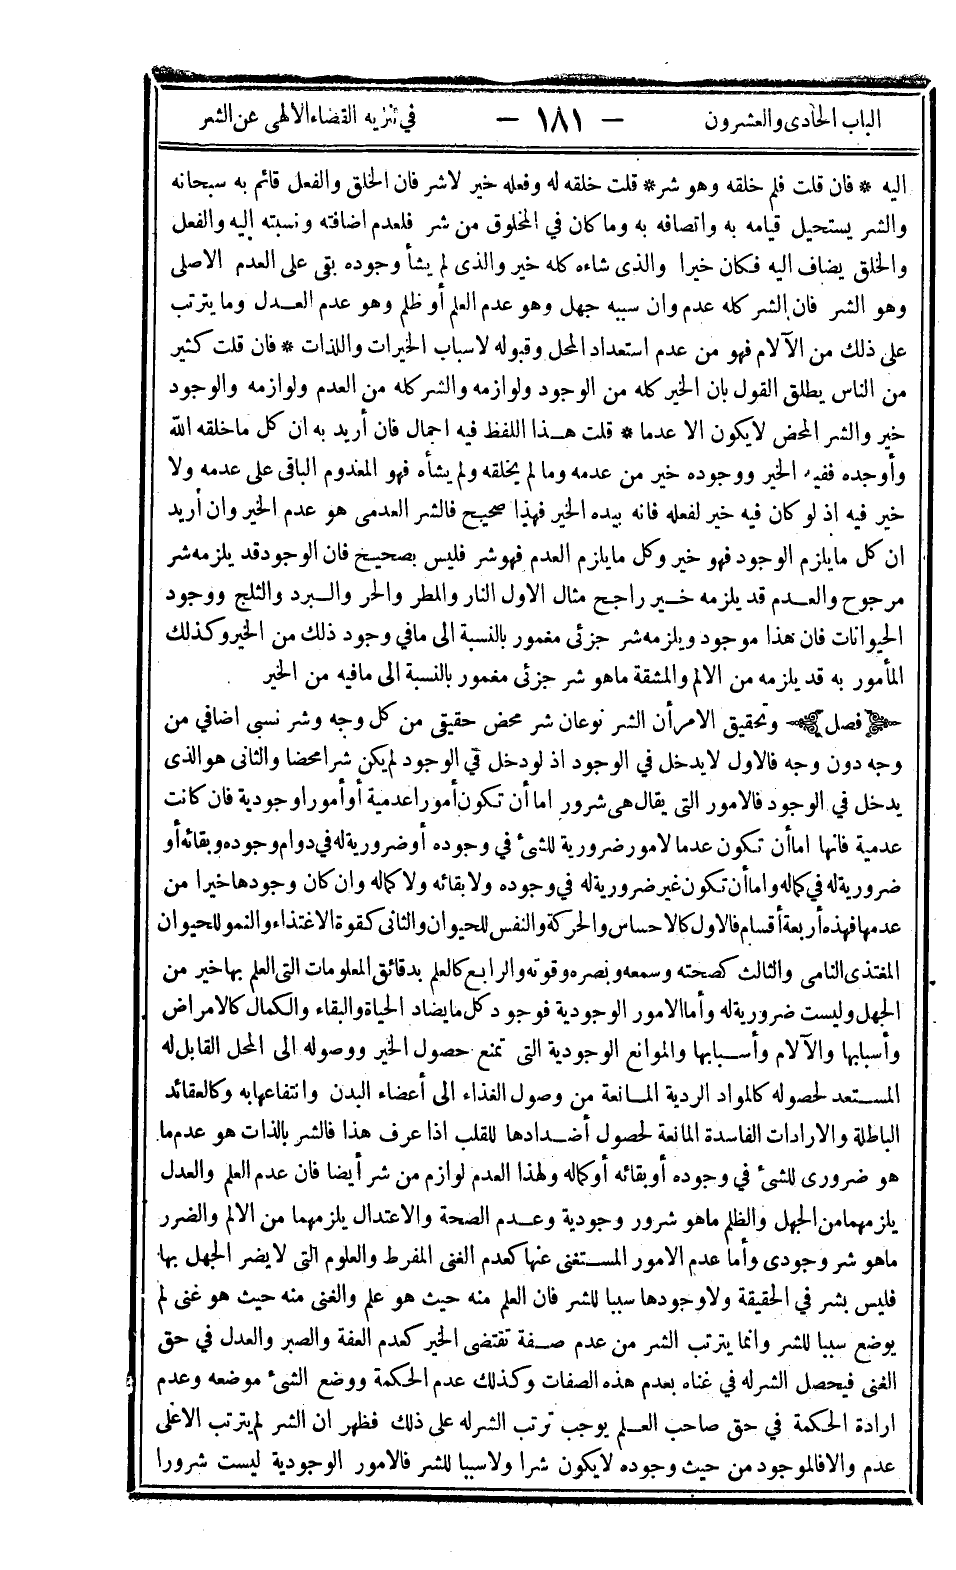 الباب الحادى والعشرون — ١٨١ — في تنزيه القضاء الالهى عن الشر
اليه * فان قلت فلم خلقه وهو شر * قلت خلقه له وفعله خير لاشر فان الخلق والفعل قائم به سبحانه
والشر يستحيل قيامه به واتصافه به وما كان في المخلوق من شر فلعدم اضافته ونسبته إليه والفعل
والخلق يضاف اليه فكان خيرا والذى شاءه كله خير والذى لم يشأ وجوده بقى على العدم الاصلى
وهو الشر فان الشر كله عدم وان سببه جهل وهو عدم العلم أو ظلم وهو عدم العـدل وما يترتب
على ذلك من الآلام فهو من عدم استعداد المحل وقبوله لاسباب الخيرات واللذات * فان قلت كثير
من الناس يطلق القول بان الخير كله من الوجود ولوازمه والشر كله من العدم ولوازمه والوجود
خير والشر المحض لايكون الا عدما * قلت هـذا اللفظ فيه اجمال فان أريد به ان كل ماخلقه الله
وأوجده ففيه الخير ووجوده خير من عدمه وما لم يخلقه ولم يشأه فهو المعدوم الباقى على عدمه ولا
خير فيه اذ لو كان فيه خير لفعله فانه بيده الخير فهذا صحيح فالشر العدمى هو عدم الخير وان أريد
ان كل مايلزم الوجود فهو خير وكل مايلزم العدم فهو شر فليس بصحيح فان الوجود قد يلزمه شر
مرجوح والعـدم قد يلزمه خـير راجح مثال الاول النار والمطر والحر والـبرد والثلج ووجود
الحيوانات فان هذا موجود ويلزمه شر جزئى مغمور بالنسبة الى مافي وجود ذلك من الخير وكذلك
المأمور به قد يلزمه من الالم والمشقة ماهو شر جزئى مغمور بالنسبة الى مافيه من الخير
فصل وتحقيق الامر أن الشر نوعان شر محض حقيقى من كل وجه وشر نسبى اضافي من
وجه دون وجه فالاول لايدخل في الوجود اذ لو دخل في الوجود لم يكن شرا محضا والثانى هو الذى
يدخل في الوجود فالامور التى يقال هى شرور اما أن تكون أمورا عدمية أو أمورا وجودية فان كانت
عدمية فانها اما أن تكون عدما لامور ضرورية للشئ في وجوده أو ضرورية له في دوام وجوده وبقائه أو
ضرورية له في كماله واما أن تكون غير ضرورية له في وجوده ولا بقائه ولا كماله وان كان وجودها خيرا من
عدمها فهذه أربعة أقسام فالاول كالاحساس والحركة والنفس للحيوان والثانى كقوة الاغتذاء والنمو للحيوان
المغتذى النامى والثالث كصحته وسمعه وبصره وقوته والرابع كالعلم بدقائق المعلومات التى العلم بها خير من
الجهل وليست ضرورية له وأما الامور الوجودية فوجود كل مايضاد الحياة والبقاء والكمال كالامراض
وأسبابها والآلام وأسـبابها والموانع الوجودية التى تمنع حصول الخير ووصوله الى المحل القابل له
المسـتعد لحصوله كالمواد الردية المـانعة من وصول الغذاء الى أعضاء البدن وانتفاعها به وكالعقائد
الباطلة والارادات الفاسدة المانعة لحصول أضـدادها للقلب اذا عرف هذا فالشر بالذات هو عدم ما
هو ضرورى للشئ في وجوده أو بقائه أو كماله ولهذا العدم لوازم من شر أيضا فان عدم العلم والعدل
يلزمهما من الجهل والظلم ماهو شرور وجودية وعـدم الصحة والاعتدال يلزمهما من الالم والضرر
ماهو شر وجودى وأما عدم الامور المسـتغنى عنها كعدم الغنى المفرط والعلوم التى لا يضر الجهل بها
فليس بشر في الحقيقة ولا وجودها سببا للشر فان العلم منه حيث هو علم والغنى منه حيث هو غنى لم
يوضع سببا للشر وانما يترتب الشر من عدم صـفة تقتضى الخير كعدم العفة والصبر والعدل في حق
الغنى فيحصل الشر له في غناه بعدم هذه الصفات وكذلك عدم الحكمة ووضع الشئ موضعه وعدم
ارادة الحكمة في حق صاحب العـلم يوجب ترتب الشر له على ذلك فظهر ان الشر لم يترتب الا على
عدم والا فالموجود من حيث وجوده لايكون شرا ولا سببا للشر فالامور الوجودية ليست شرورا